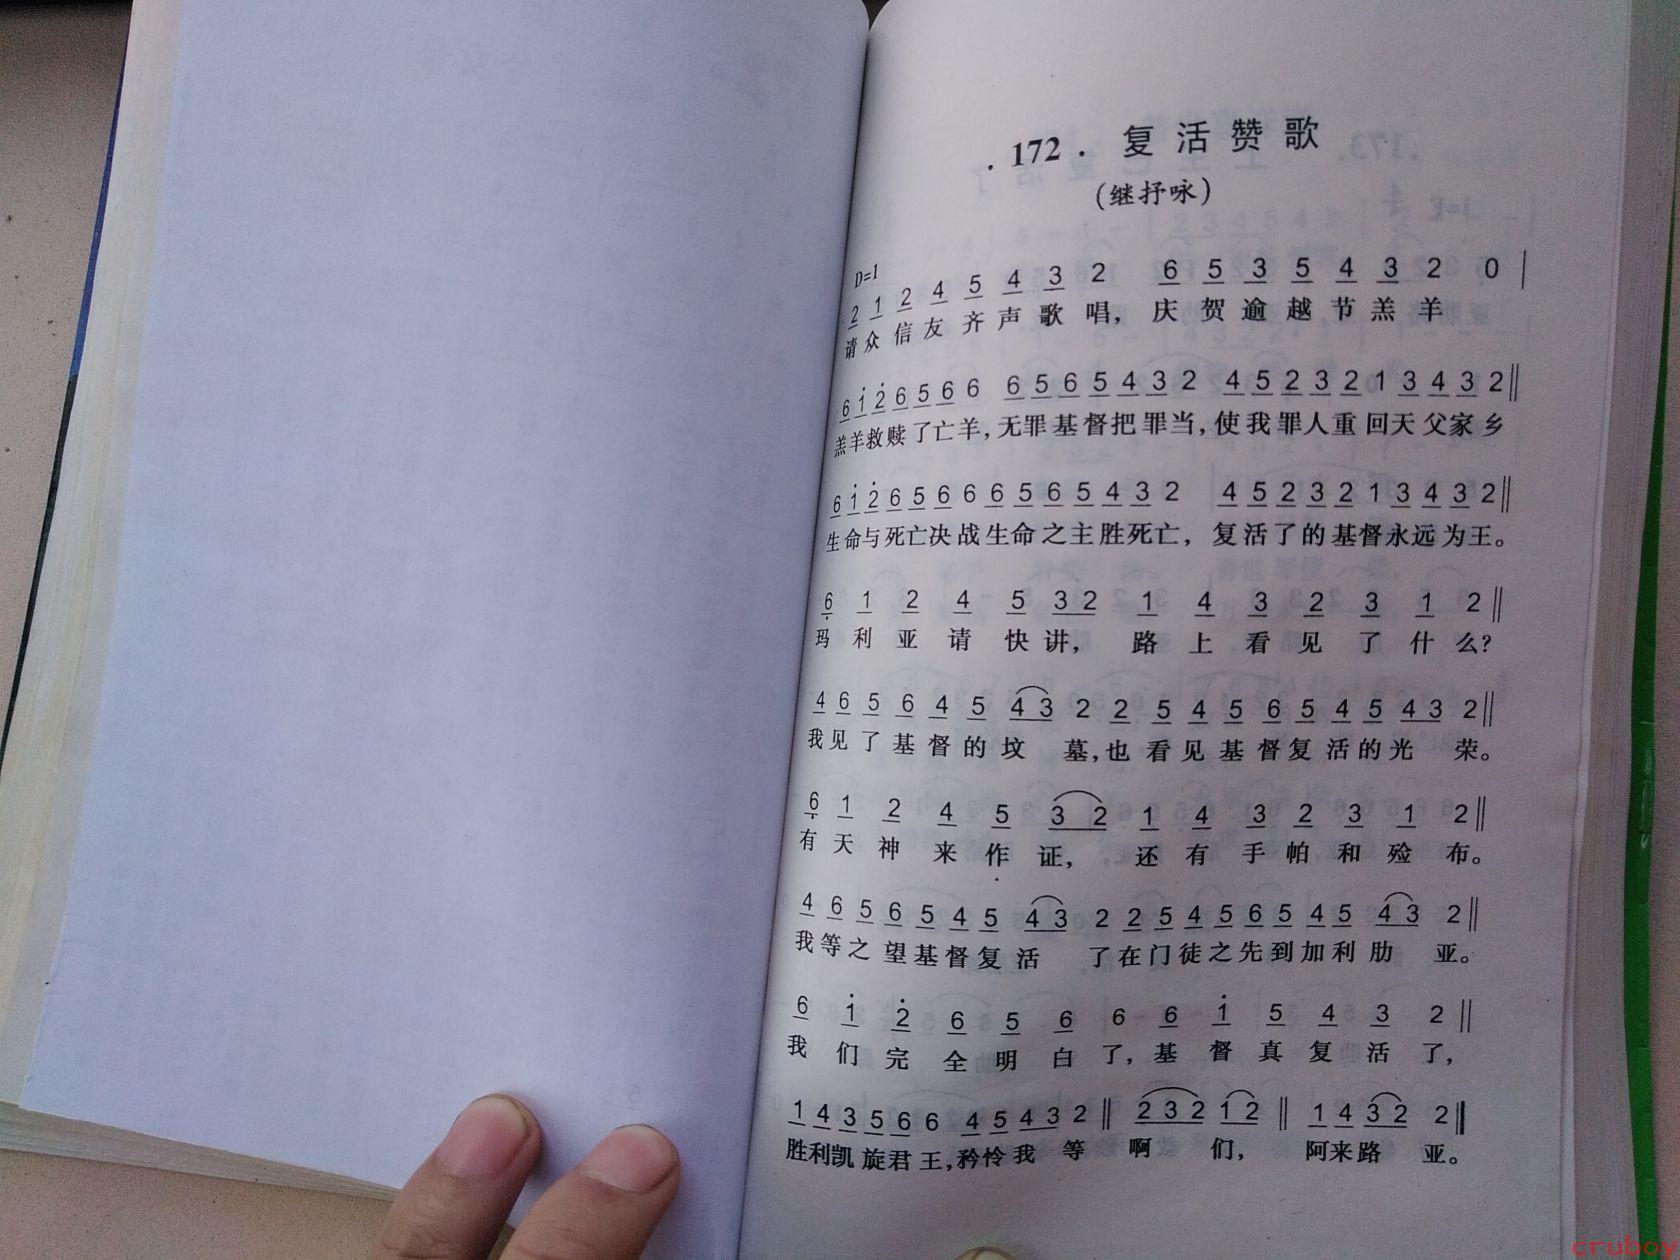 .172. 复活赞歌
(继抒咏)
D=1
2 1 2 4 5 4 3 2 6 5 3 5 4 3 2 0 |
请众信友齐声歌唱，庆贺逾越节羔羊
6 1 2 6 5 6 6 6 5 6 5 4 3 2 4 5 2 3 2 1 3 4 3 2 ‖
羔羊救赎了亡羊，无罪基督把罪当，使我罪人重回天父家乡
6 1 2 6 5 6 6 6 5 6 5 4 3 2 4 5 2 3 2 1 3 4 3 2 ‖
生命与死亡决战生命之主胜死亡，复活了的基督永远为王。
6 1 2 4 5 3 2 1 4 3 2 3 1 2 ‖
玛利亚请快讲，路上看见了什么？
4 6 5 6 4 5 4 3 2 2 5 4 5 6 5 4 5 4 3 2 ‖
我见了基督的坟墓，也看见基督复活的光荣。
6 1 2 4 5 3 2 1 4 3 2 3 1 2 ‖
有天神来作证，还有手帕和殓布。
4 6 5 6 5 4 5 4 3 2 2 5 4 5 6 5 4 5 4 3 2 ‖
我等之望基督复活了在门徒之先到加利肋亚。
6 1 2 6 5 6 6 6 1 5 4 3 2 ‖
我们完全明白了，基督真复活了，
1 4 3 5 6 6 4 5 4 3 2 ‖ 2 3 2 1 2 ‖ 1 4 3 2 2 ‖
胜利凯旋君王，矜怜我等啊们，阿来路亚。
cruboy